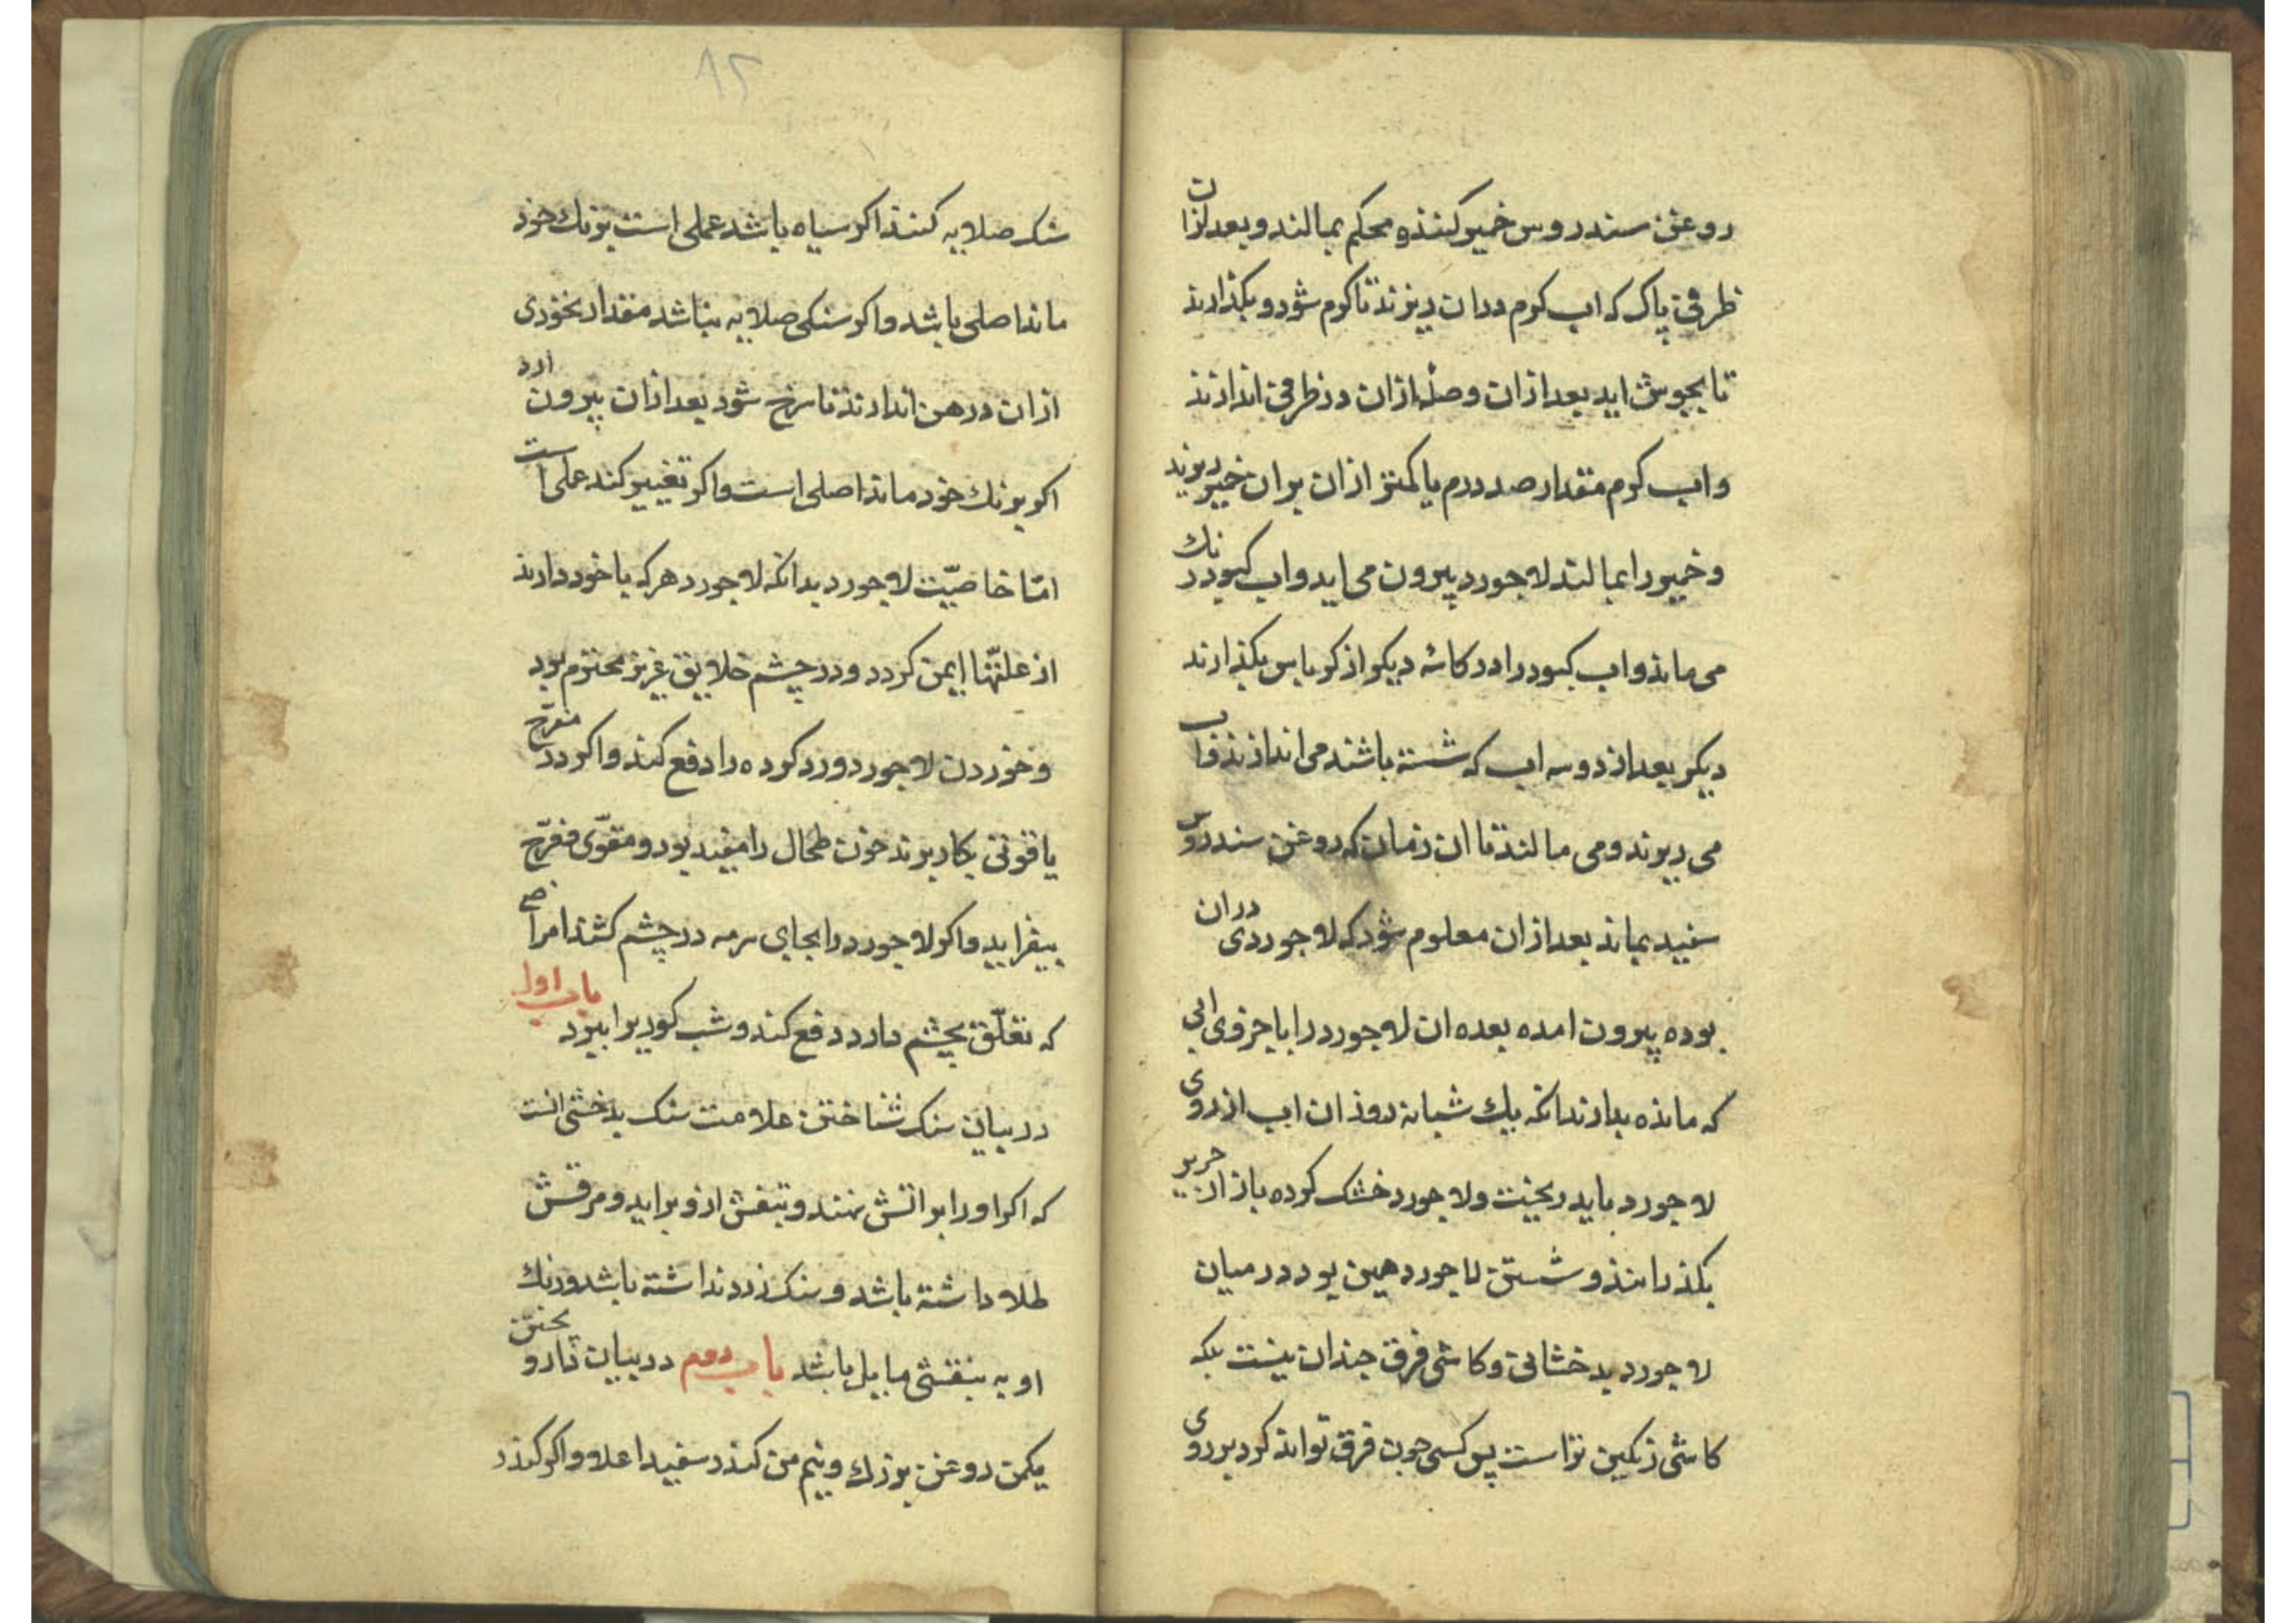 روغن سندروس خمیر کنند و محکم بمالند و بعد ازان
ظرفی پاک که اب کرم دران ریزند تا کرم شود و بکذارند
تا بجوش اید بعد ازان وصله ازان در ظرفی اندازند
و اب کرم مقدار صد درم یا کمتر ازان بران خمیر ریزند
و خمیر را بمالند لاجورد بیرون می اید و اب کبود رنك
می ماند و اب کبود را در کاسه دیکر از کرباس بکذارند
دیکر بعد از دو سه اب که شسته باشند می اندازند و اب
می ریزند و می مالند تا ان زمان که روغن سندروس
سفید بماند بعد ازان معلوم شود که لاجوردی دران
بوده بیرون امده بعده ان لاجورد را با جزوی ابی
که مانده بدارند انکه یك شبانه روز ان اب از روی
لاجورد باید ریخت و لاجورد خشک کرده باز از حریر
بکذرانند و شستن لاجورد همین بود در میان
لاجورد بدخشانی و کاشی فرق چندان نیست بلکه
کاشی رنکین تر است پس کسی چون فرق تواند کرد بر روی
۸۲
سنک صلایه کنند اکر سیاه باشد عملی است بر نك خود
ماند اصلی باشد و اکر سنکی صلایه نباشد مقدار نخودی
ازان در دهن اندازند تا سرخ شود بعد ازان بیرون ارد
اکر برنك خود ماند اصلی است و اکر تغییر کند عملی است
امّا خاصیّت لاجورد بدانکه لاجورد هر که با خود دارند
از علتّها ایمن کردد و در چشم خلایق عزیز محترم بود
و خوردن لاجورد درد کرده را دفع کند و اکر در مفرّح
یاقوتی بکار برند خون طحال را مفید بود و مقوّی مفرّح
بیفزاید و اکر لاجورد را بجای سرمه در چشم کشند امراضی
که تعلّق بچشم دارد دفع کند و شب کوریرا ببرد باب اول
در بیان سنک شناختن علامت سنک بدخشی انست
که اکر او را بر اتش نهند و بنفش ازو براید و مرقش
طلا داشته باشد و سنک زرد نداشته باشد و رنك
او به بنفشی مایل باشد باب دوم در بیان دارو پختن
یکمن روغن بزرك و نیم من کندر سفید اعلا و اکر کندر